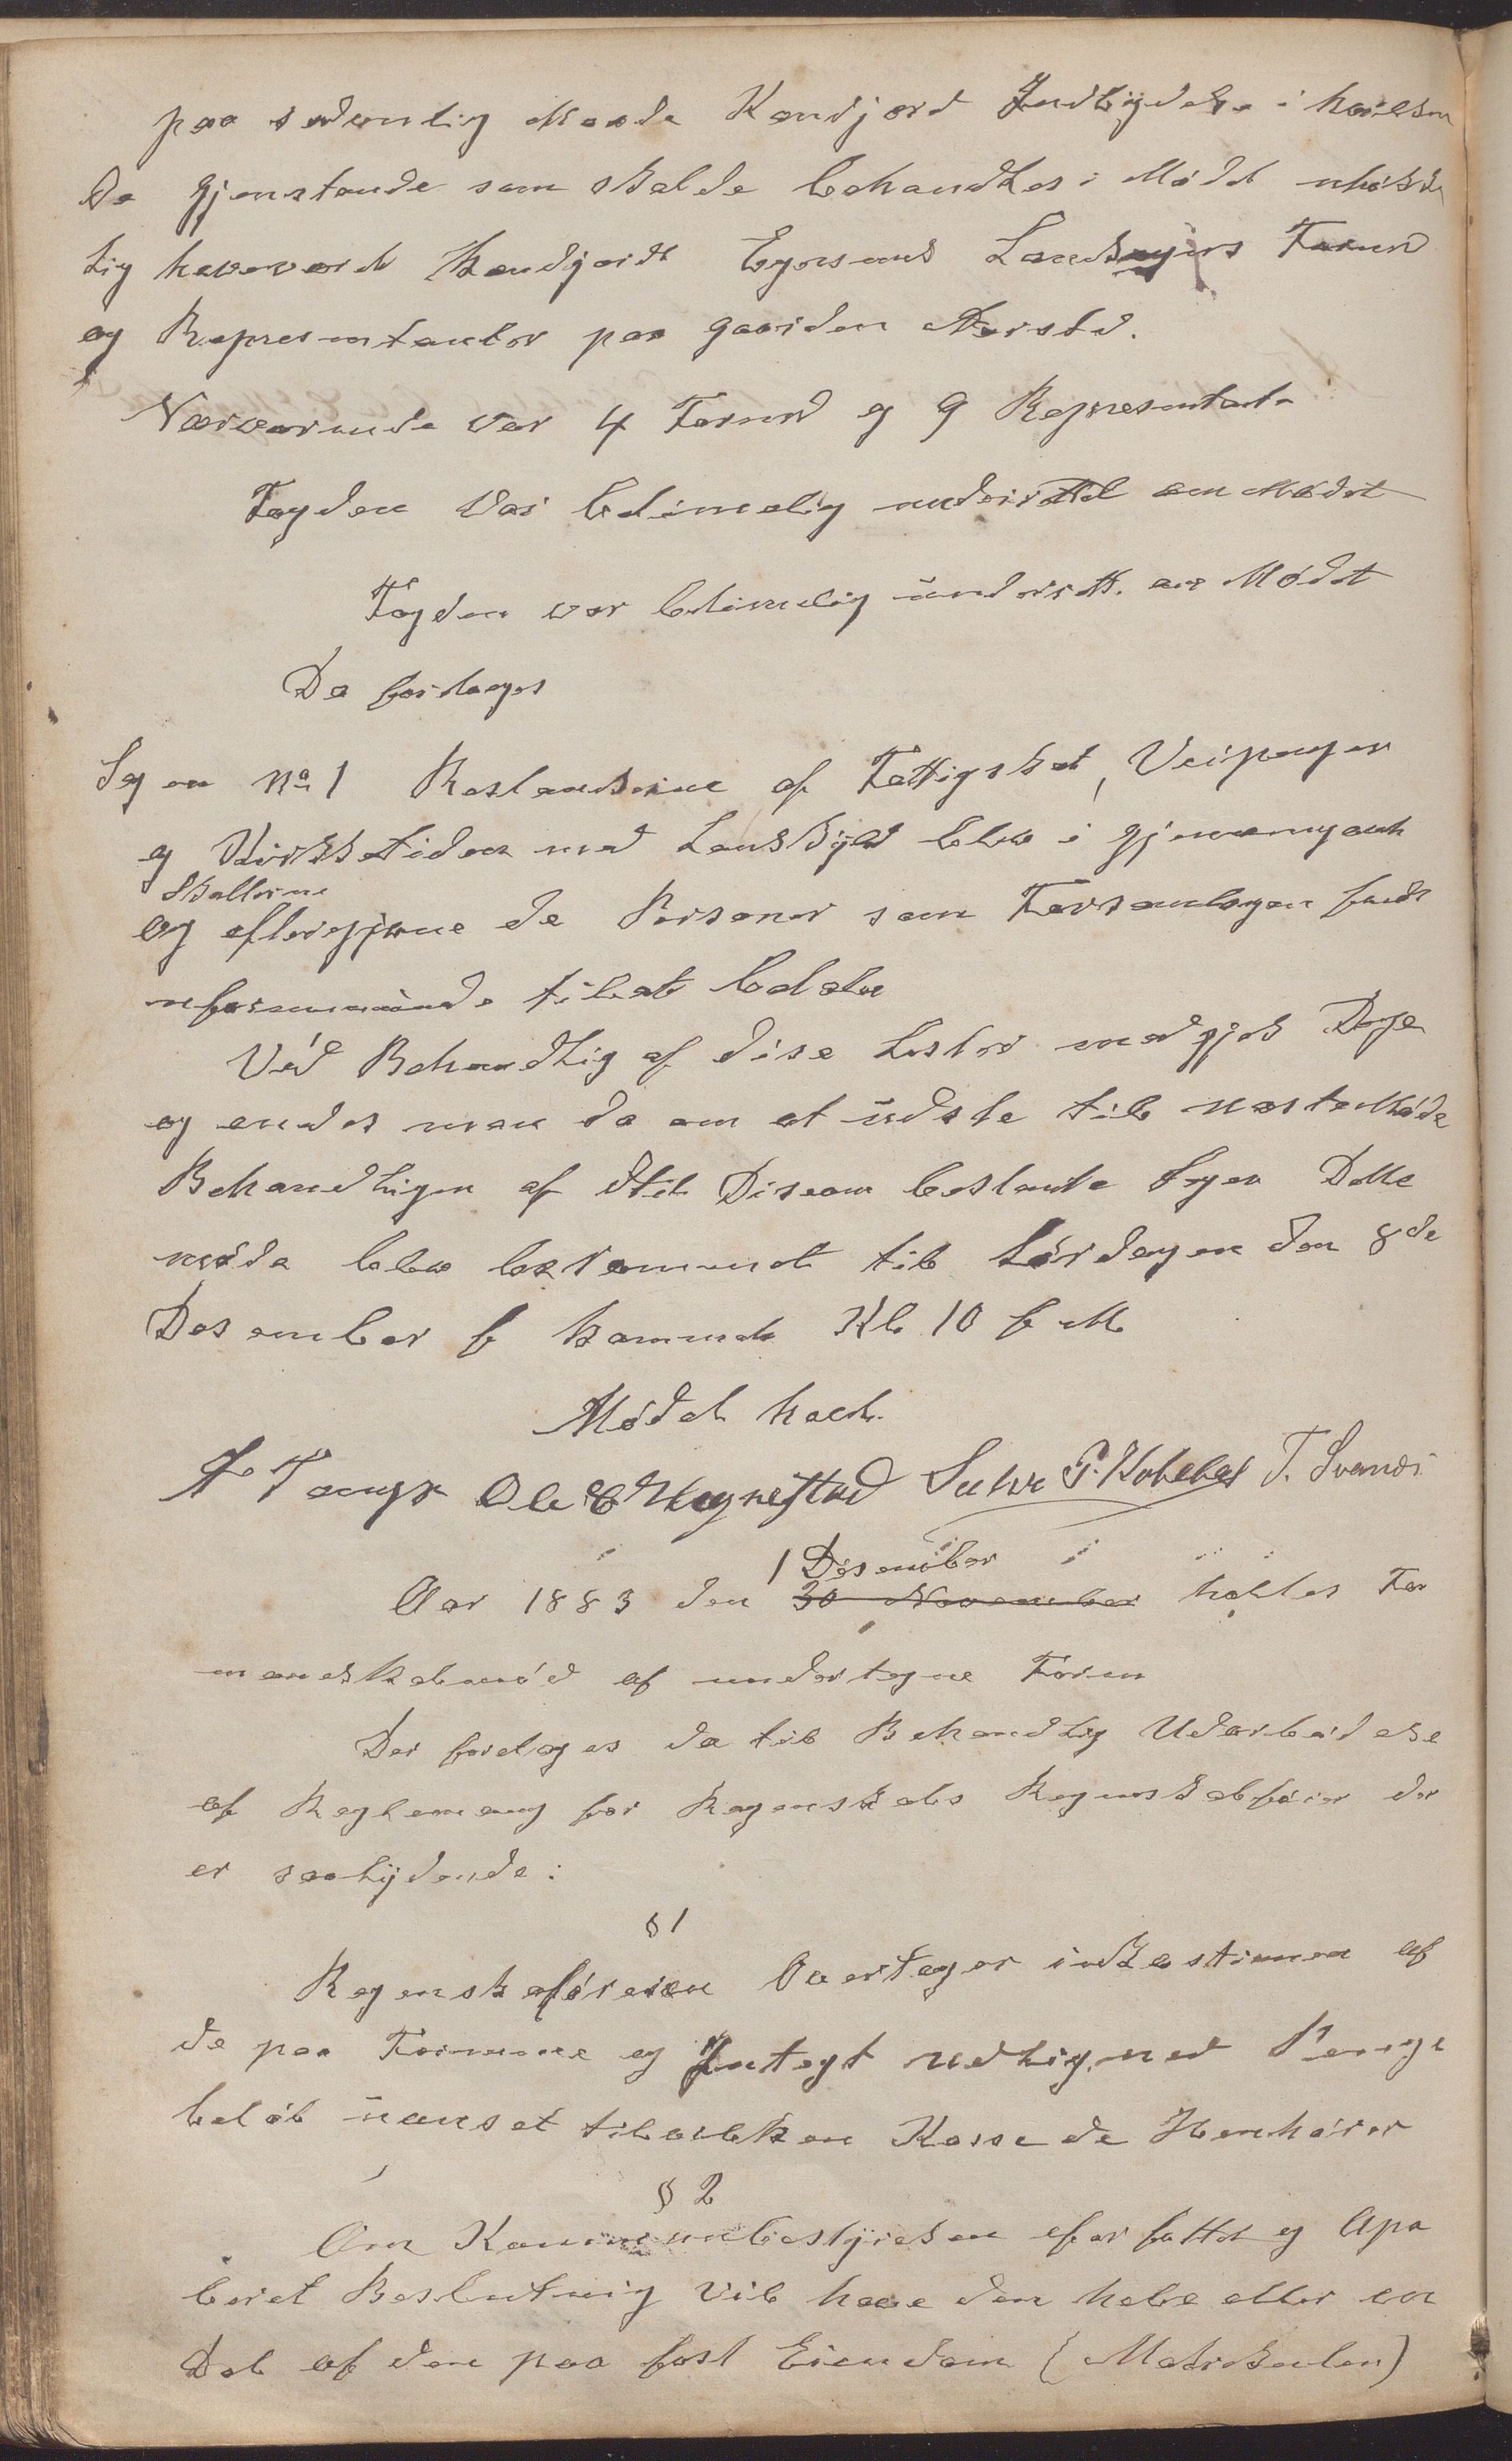 paa sedvanlig Maade Kundjord Indbydelse i hvilken
De gjenstande som skalde behandles i Mødet
lig havevard Kundgjordt Egersunds Landsogns Formd
og Representanter paa gaarden Aarstad.
Nærværende var 4 Formd og 9 Representante
Fogden var betimelig underrettd om Mødet
Fogden var betimelig underrett. om Mødet
De fortages
Sag en No 1 Restanserne af Fattigskat, Veipenger
og Kirketienden med Landskyld blev i gjennemgaat
Skatterne
og eftergivne de Personer som Forsamlingen fandt
uformuende til at betale
Ved Behandlig af disse Lister medgjek Dage
og endes man da om at udste til næste Møde
Behandlingen af dtil Diseam bestemte Sager Dette
møde blev bestemmet til Lørdagen den 8de
Desember f kommende Kl 10 f M
Mødet hævt.
T. Svanes
1 Desember
Aar 1883 den 30 November holtes For
mandskabsmød af undertegne Form
Der fortages da til Behandlig Udarbeidelse
af Reglemang for Regenskabs Regnskabsfører der
er saalydende:
§ 1
Regenskaføreren Overtager indkastionen af
de paa Formune og Integt udlignet Penge
beløb uanset til vilken Kasse de Henhører
§ 2
Om Kommunebestyrelsen efor fattet og Apa
beret Beslutnig vil have den hele eller en
Del af den paa fast Eiendom (Matrikulen)